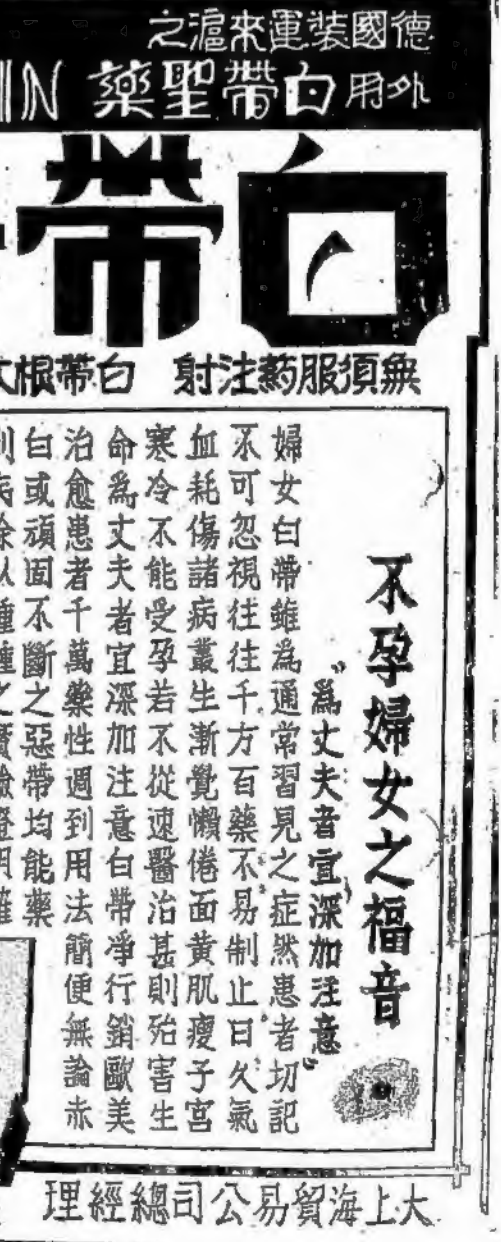 德國裝運來滬之
外用白帶聖藥
白帶
無須服药注射 白帶根
不孕婦女之福音
"為丈夫者宜深加注意"
婦女白帶雖為通常習見之症然患者切記
不可忽視往往千方百藥不易制止日久氣
血耗傷諸病叢生漸覺懶倦面黃肌瘦子宮
寒冷不能受孕若不從速醫治甚則殆害生
命為丈夫者宜深加注意白帶凈行銷歐美
治愈患者千萬藥性週到用法簡便無論赤
白或頑固不斷之惡帶均能藥
大上海貿易公司總經理